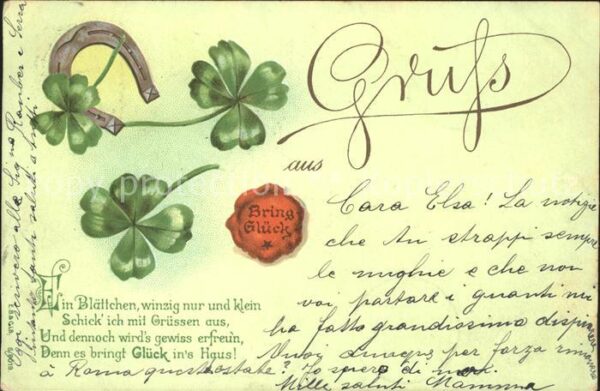 Gruß
aus
Bring
Glück
Ein Blättchen, winzig nur und klein
Schick' ich mit Grüssen aus,
Und dennoch wird's gewiss erfreun,
Denn es bringt Glück in's Haus!
Cara Elsa! La notizia
che tu strappi sempre
le unghie e che non
vuoi portare i guanti mi
ha fatto grandissimo dispiacere
Vuoi dunque, per forza rimanere
a Roma quest'estate? Io spero di no.
Mille saluti Mamma
Oggi scrivero alla Sig.na Rauber e
tanti saluti a tutti